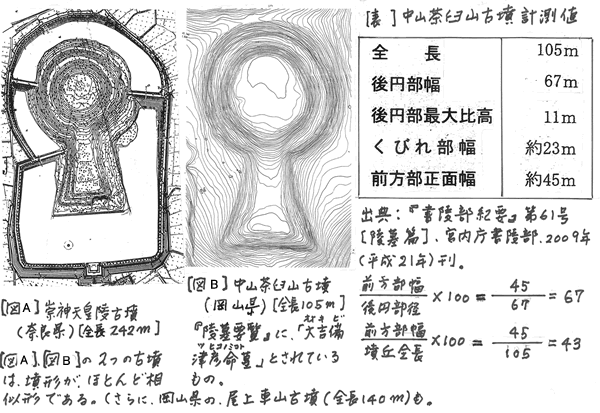 [表] 中山茶臼山古墳計測値
全長 105m
後円部幅 67m
後円部最大比高 11m
くびれ部幅 約23m
前方部正面幅 約45m
出典:『書陵部紀要』第61号
[陵墓篇]、宮内庁書陵部、2009年
(平成21年)刊。
前方部幅/後円部径 ×100 = 45/67 = 67
前方部幅/墳丘全長 ×100 = 45/105 = 43
[図A] 崇神天皇陵古墳
(奈良県)[全長242m]
[図B] 中山茶臼山古墳
(岡山県)[全長105m]
『陵墓要覧』に、「大吉備
津彦命墓」とされている
もの。
[図A]、[図B]の2つの古墳
は、墳形が、ほとんど相
似形である。(さらに、岡山県の、尾上車山古墳(全長140m)も。